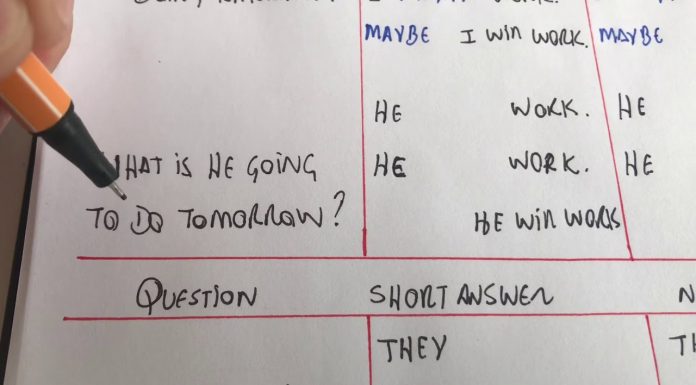 MAYBE I WIN WORK. MAYBE
HE WORK. HE
WHAT IS HE GOING HE WORK. HE
TO DO TOMORROW? HE WIN WORKS
QUESTION SHORT ANSWER N
THEY TH